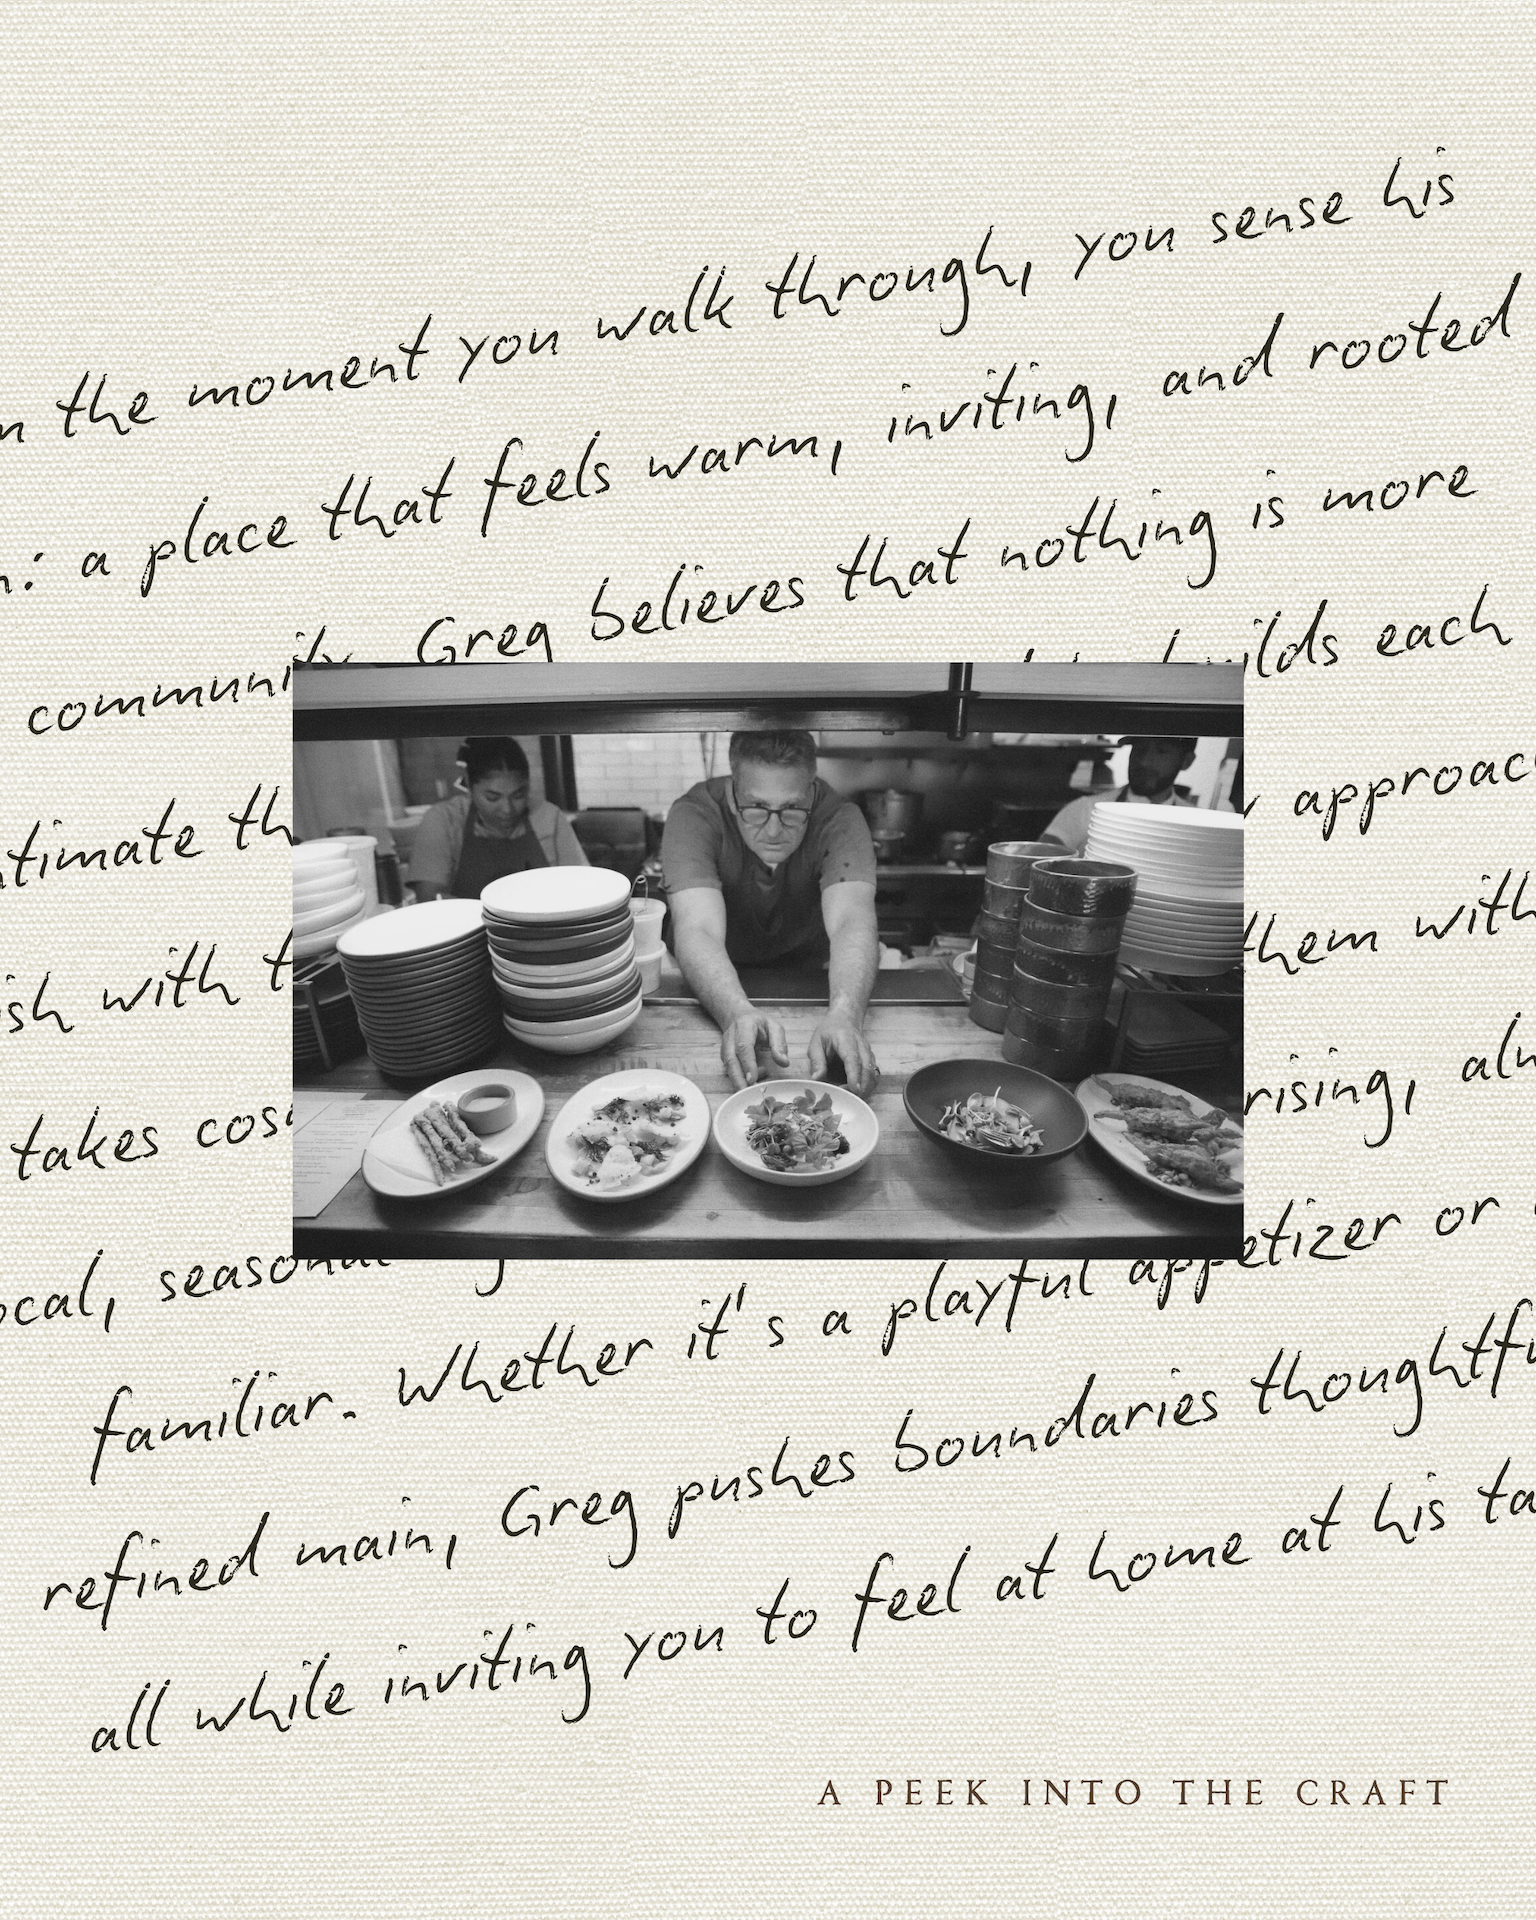 the moment you walk through, you sense his
: a place that feels warm, inviting, and rooted
community. Greg believes that nothing is more
builds each
approac
with
them with
takes
rising,
local, seasonal
familiar. Whether it's a playful appetizer or
refined main, Greg pushes boundaries
all while inviting you to feel at home at his
A PEEK INTO THE CRAFT